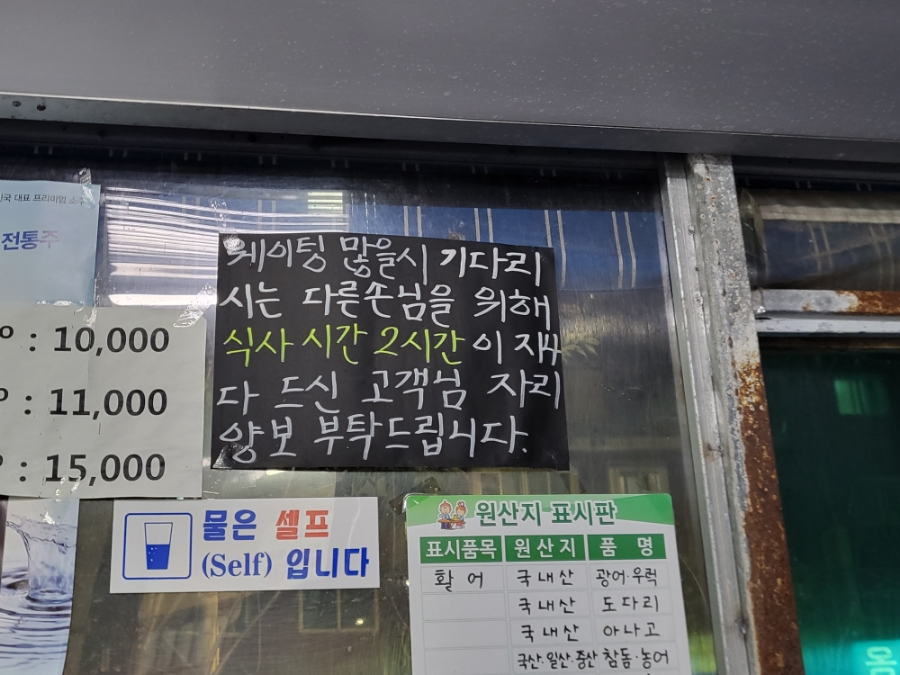 대표 프리미엄
전통주
: 10,000
: 11,000
: 15,000
웨이팅 많을시 기다리
시는 다른손님을 위해
식사 시간 2시간 이 재
다 드신 고객님 자리
양보 부탁드립니다.
물은 셀프
(Self) 입니다
원산지 표시판
표시품목 원산지 품 명
활 어 국내산 광어·우럭
국내산 도다리
국내산 아나고
국산·일산·중산 참돔·농어